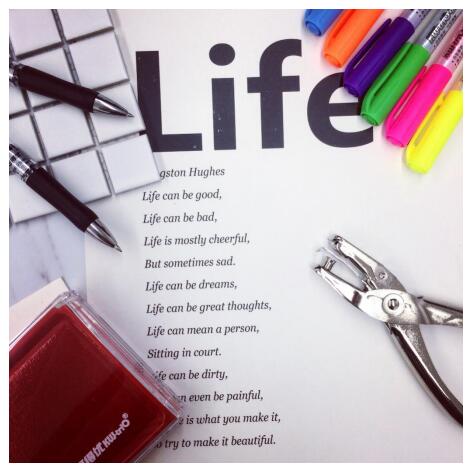 Life
gston Hughes
Life can be good,
Life can be bad,
Life is mostly cheerful,
But sometimes sad.
Life can be dreams,
Life can be great thoughts,
Life can mean a person,
Sitting in court.
Life can be dirty,
n even be painful,
e is what you make it,
o try to make it beautiful.
KW-triO®